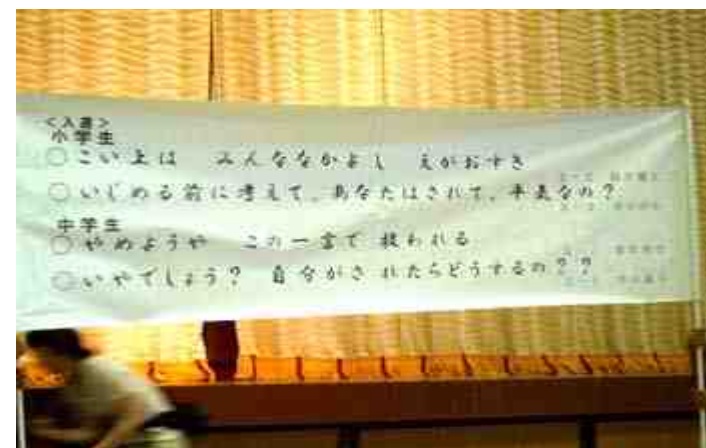 <入選>
小学生
○こい上は みんななかよし えがおすき
○いじめる前に考えて、あなたはされて、平気なの?
中学生
○やめようや この一言で 救われる
○いやでしょう? 自分がされたらどうするの??